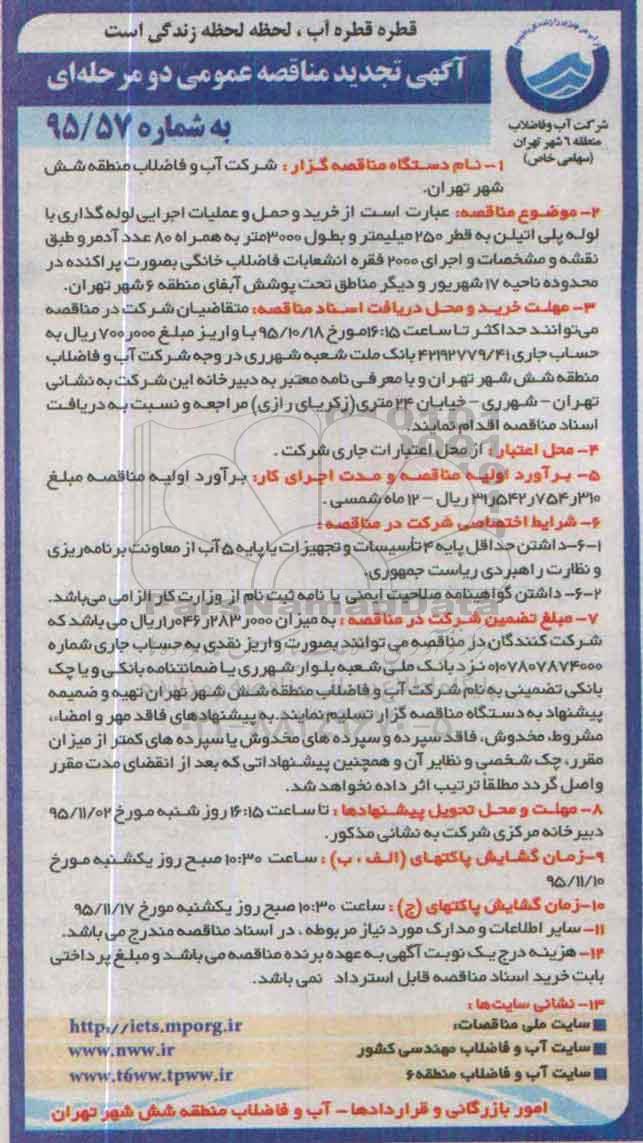 قطره قطره آب ، لحظه لحظه زندگی است
آگهی تجدید مناقصه عمومی دو مرحله‌ای
به شماره ۹۵/۵۷
شرکت آب و فاضلاب
منطقه ۶ شهر تهران
(سهامی خاص)
۱- نام دستگاه مناقصه گزار : شرکت آب و فاضلاب منطقه شش
شهر تهران.
۲- موضوع مناقصه: عبارت است از خرید و حمل و عملیات اجرایی لوله گذاری با
لوله پلی اتیلن به قطر ۲۵۰ میلیمتر و بطول ۳۰۰۰متر به همراه ۸۰ عدد آدمرو طبق
نقشه و مشخصات و اجرای ۲۰۰۰ فقره انشعابات فاضلاب خانگی بصورت پراکنده در
محدوده ناحیه ۱۷ شهریور و دیگر مناطق تحت پوشش آبفای منطقه ۶ شهر تهران.
۳- مهلت خرید و محل دریافت اسناد مناقصه: متقاضیان شرکت در مناقصه
می‌توانند حداکثر تا ساعت ۱۶:۱۵مورخ ۹۵/۱۰/۱۸ با واریز مبلغ ۷۰۰ر۰۰۰ ریال به
حساب جاری ۴۲۱۹۲۷۷۹/۴۱ بانک ملت شعبه شهرری در وجه شرکت آب و فاضلاب
منطقه شش شهر تهران و با معرفی نامه معتبر به دبیرخانه این شرکت به نشانی
تهران - شهرری - خیابان ۲۴ متری(زکریای رازی) مراجعه و نسبت به دریافت
اسناد مناقصه اقدام نمایند.
۴- محل اعتبار : از محل اعتبارات جاری شرکت .
۵- برآورد اولیه مناقصه و مدت اجرای کار: برآورد اولیه مناقصه مبلغ
۳۱ر۵۴۲ر۷۵۴ر۳۱۰ ریال - ۱۲ ماه شمسی .
۶- شرایط اختصاصی شرکت در مناقصه :
۶-۱-داشتن حداقل پایه ۴ تأسیسات و تجهیزات یا پایه ۵ آب از معاونت برنامه‌ریزی
و نظارت راهبردی ریاست جمهوری.
۶-۲- داشتن گواهینامه صلاحیت ایمنی یا نامه ثبت نام از وزارت کار الزامی می‌باشد.
ParsNamadData
۷- مبلغ تضمین شرکت در مناقصه : به میزان ۱ر۰۴۶ر۲۸۳ر۰۰۰ریال می باشد که
شرکت کنندگان در مناقصه می توانند بصورت واریز نقدی به حساب جاری شماره
۰۱۰۷۸۰۷۸۷۴۰۰۰ نزد بانک ملی شعبه بلوار شهرری یا ضمانتنامه بانکی و یا چک
بانکی تضمینی به نام شرکت آب و فاضلاب منطقه شش شهر تهران تهیه و ضمیمه
پیشنهاد به دستگاه مناقصه گزار تسلیم نمایند. به پیشنهادهای فاقد مهر و امضاء،
مشروط، مخدوش، فاقد سپرده و سپرده های مخدوش یا سپرده های کمتر از میزان
مقرر، چک شخصی و نظایر آن و همچنین پیشنهاداتی که بعد از انقضای مدت مقرر
واصل گردد مطلقاً ترتیب اثر داده نخواهد شد.
۸- مهلت و محل تحویل پیشنهادها : تا ساعت ۱۶:۱۵ روز شنبه مورخ ۹۵/۱۱/۰۲
دبیرخانه مرکزی شرکت به نشانی مذکور.
۹-زمان گشایش پاکتهای (الف ، ب) : ساعت ۱۰:۳۰ صبح روز یکشنبه مورخ
۹۵/۱۱/۱۰
۱۰-زمان گشایش پاکتهای (ج) : ساعت ۱۰:۳۰ صبح روز یکشنبه مورخ ۹۵/۱۱/۱۷
۱۱- سایر اطلاعات و مدارک مورد نیاز مربوطه ، در اسناد مناقصه مندرج می باشد.
۱۲- هزینه درج یک نوبت آگهی به عهده برنده مناقصه می باشد و مبلغ پرداختی
بابت خرید اسناد مناقصه قابل استرداد نمی باشد.
۱۳- نشانی سایت‌ها :
سایت ملی مناقصات: http://iets.mporg.ir
سایت آب و فاضلاب مهندسی کشور www.nww.ir
سایت آب و فاضلاب منطقه۶ www.t6ww.tpww.ir
امور بازرگانی و قراردادها - آب و فاضلاب منطقه شش شهر تهران